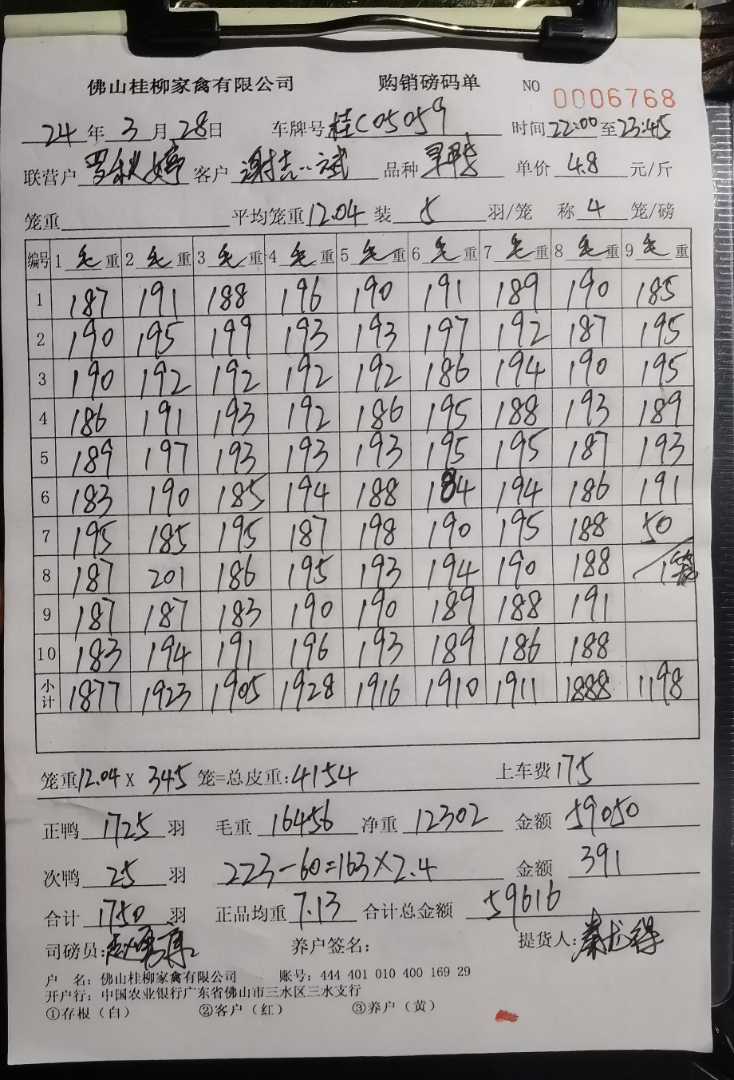 佛山桂柳家禽有限公司 购销磅码单 NO 0006768
24年3月28日 车牌号桂C05059 时间22:00至23:45
联营户 罗秋婷 客户 谢吉 斌 品种 单价 4.8 元/斤
笼重 平均笼重12.04 装 5 羽/笼 称 4 笼/磅
编号 1 毛重 2 毛重 3 毛重 4 毛重 5 毛重 6 毛重 7 毛重 8 毛重 9 毛重
1 187 191 188 196 190 191 189 190 185
2 190 195 199 193 193 197 192 187 195
3 190 192 192 192 192 186 194 190 195
4 186 191 193 192 186 195 188 193 189
5 189 197 193 193 193 195 195 187 193
6 183 190 185 194 188 184 194 186 191
7 195 185 195 187 198 190 195 188 50
8 187 201 186 195 193 194 190 188 1笼
9 187 187 183 190 190 189 188 191
10 183 194 191 196 193 189 186 188
小计 1877 1923 1905 1928 1916 1910 1911 1888 1198
笼重12.04 X 345 笼=总皮重:4154 上车费175
正鸭 1725 羽 毛重 16456 净重 12302 金额 59050
次鸭 25 羽 223-60=163×2.4 金额 391
合计 1750 羽 正品均重 7.13 合计总金额 59616
司磅员: 养户签名: 提货人:秦龙得
户 名: 佛山桂柳家禽有限公司 账号: 444 401 010 400 169 29
开户行: 中国农业银行广东省佛山市三水区三水支行
①存根（白） ②客户（红） ③养户（黄）